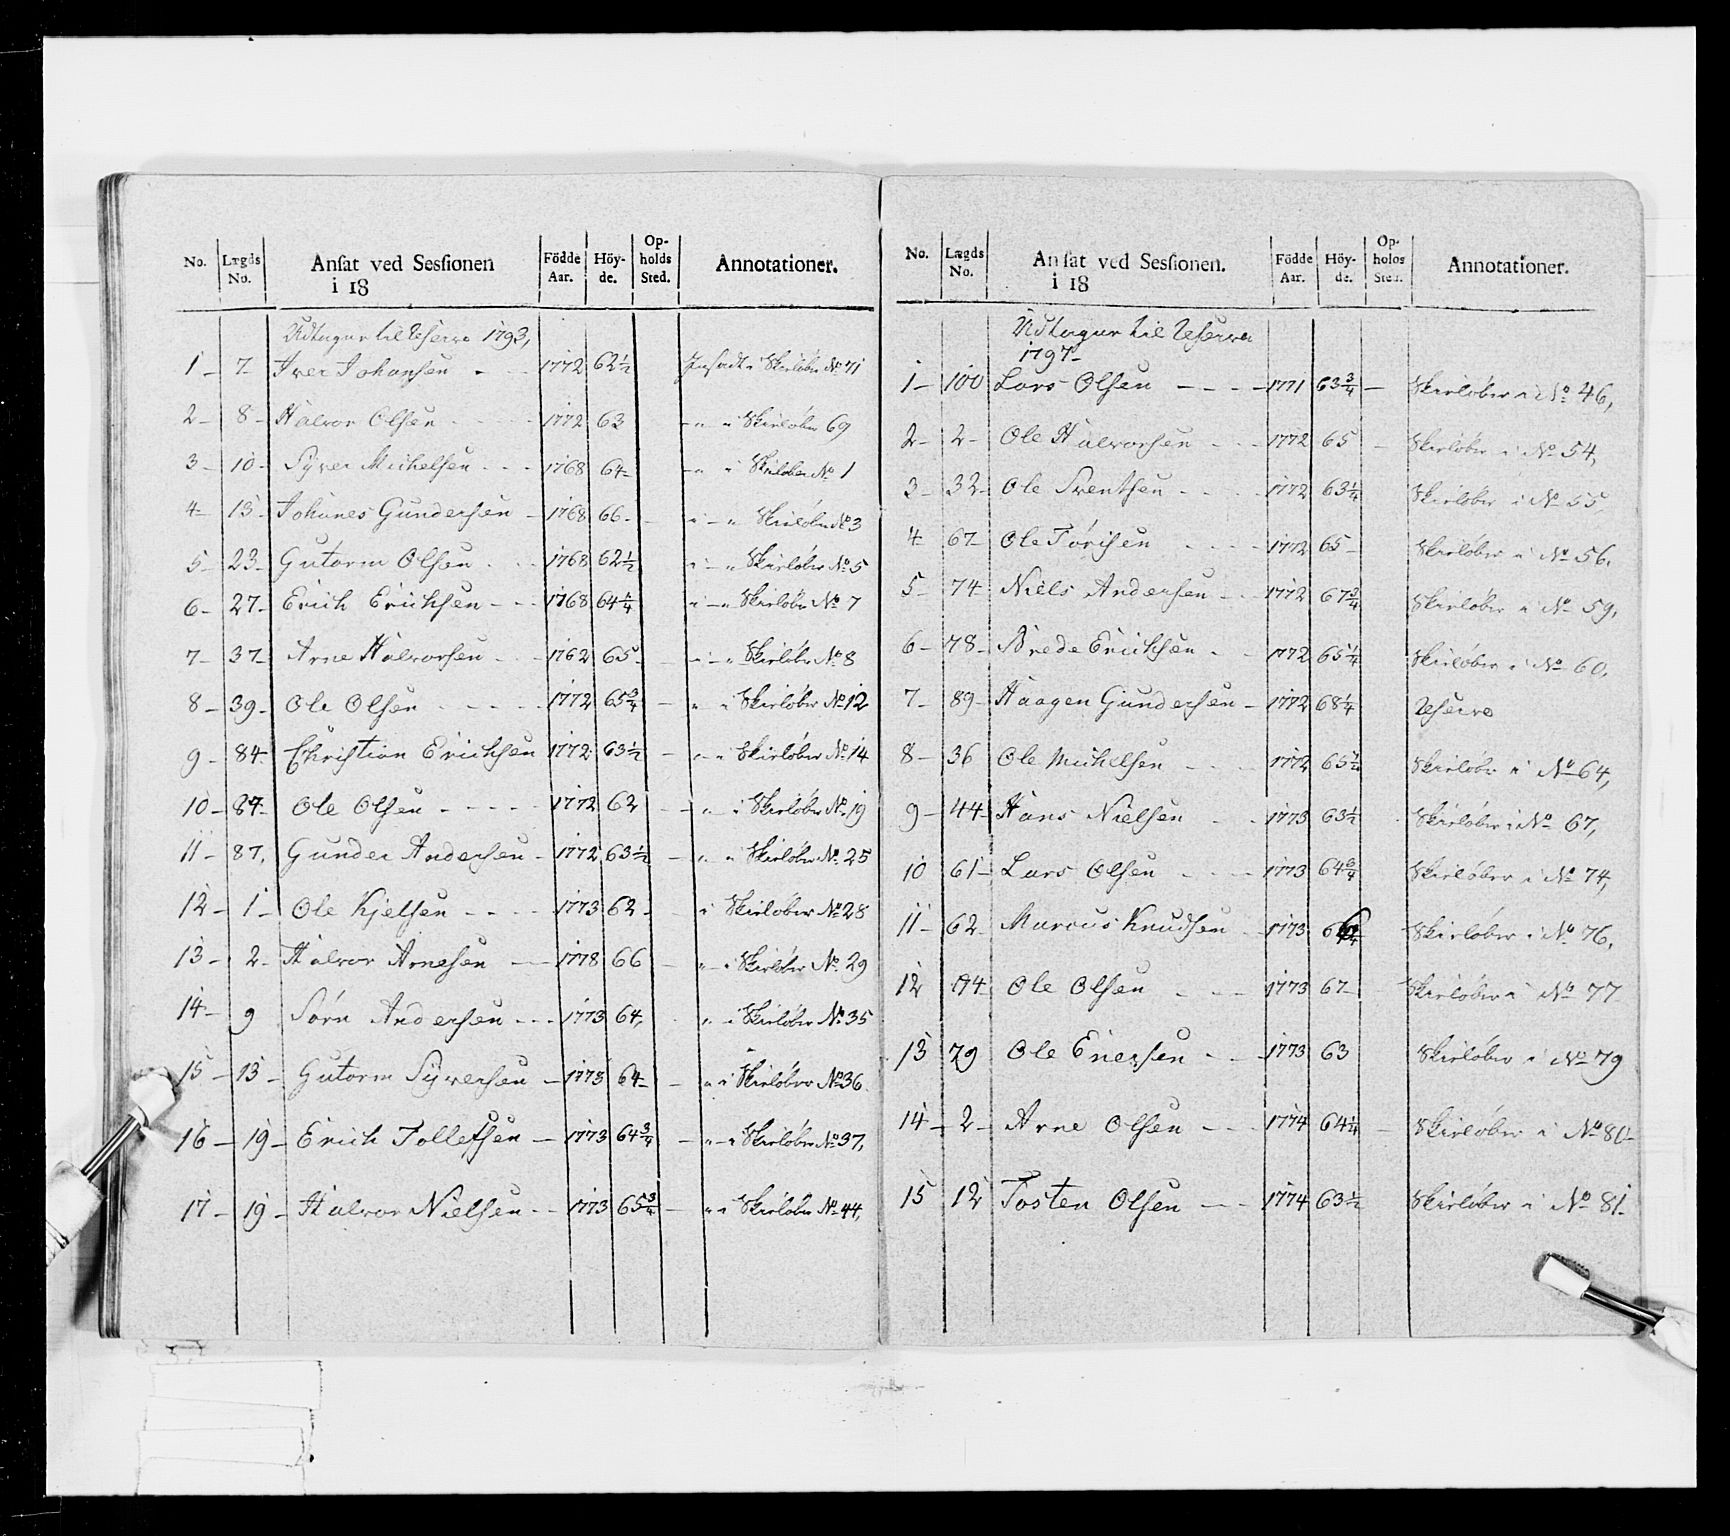 No. Lægds No. Anſat ved Sesſionen i 18 Födde Aar. Höy- de. Op- holds Sted. Annotationer.
Udtagne til Reserve 1793,
1 – 7 – Iver Johansen – 1772 62½ Indsadt i Skieløber No 71
2 – 8 – Halvor Olsen 1772 63 – " i Skieløber 69
3 – 10 – Syver Michelsen 1768 64 – – " i Skieløber No 1
4 – 13 – Johanes Gundersen – 1768 66 – Skieløber No 3
5 – 23 – Gutorm Olsen 1768 62½ Skieløber No 5
6 – 27 – Erich Erichsen – 1768 64¼ Skieløber No 7
7 – 37 – Arne Halvorsen 1762 65 – Skieløber No 8
8 – 39 – Ole Olsen 1772 65¾ – " i Skieløber No 12
9 – 84 Christian Erichsen 1772 63½ – Skieløber No 14
10 – 87 – Ole Olsen 1772 62 – " i Skieløber No 19
11 – 87, Gunder Andersen – 1772 63½ – " Skieløber No 25
12 – 1 – Ole Kjelsen 1773 62 – i Skieløber No 28
13 – 2 – Halvor Arnesen 1773 66 – " i Skieløber No 29
14 – 9 Sørn Andersen 1773 64, " i Skieløber No 35
15 – 13 – Gutorm Syversen – 1773 64 – – " i Skieløber No 36
16 – 19 – Erich Tollefsen – 1773 64¾ – " i Skieløber No 37,
17 – 19 – Halvor Nielsen 1773 65¾ – " i Skieløber No 44,
No. Lægds No. Anſat ved Sesſionen. i 18 Födde Aar. Höy- de. Op- holds Sted. Annotationer.
Udtagne til Reserve
1797 –
1 – 100 Lars Olsen 1771 63¾ – Skieløber i No 46,
2 – 2 – Ole Halvorsen 1772 65 – Skieløber i No 54,
3 – 32 – Ole Sventsen 1772 63¼ Skieløber i No 55,
4 67 – Ole Torisen 1772 65 – Skieløber i No 56.
5 – 74 Niels Andersen 1772 67¾ Skieløber i No 59,
6 – 78 – Brede Erichsen 1772 65¼ Skieløber i No 60,
7 – 89 – Haagen Gundersen – 1772 68¼ Reserve
8 – 36 Ole Michelsen 1772 65¼ Skieløber i No 64,
9 – 44 – Hans Nielsen 1773 63½ Skieløber i No 67,
10 61 – Lars Olsen 1773 64¾ Skieløber i No 74,
11 – 62 – Marcus Knudsen 1773 Skieløber i No 76,
12 74 Ole Olsen 1773 67 – Skieløber i No 77
13 79 Ole Enersen 1773 63 Skieløber i No 79
14 – 2 – Arne Olsen 1774 64¼ – Skieløber i No 80 –
15 12 Tosten Olsen 1774 63½ Skieløber i No 81 –